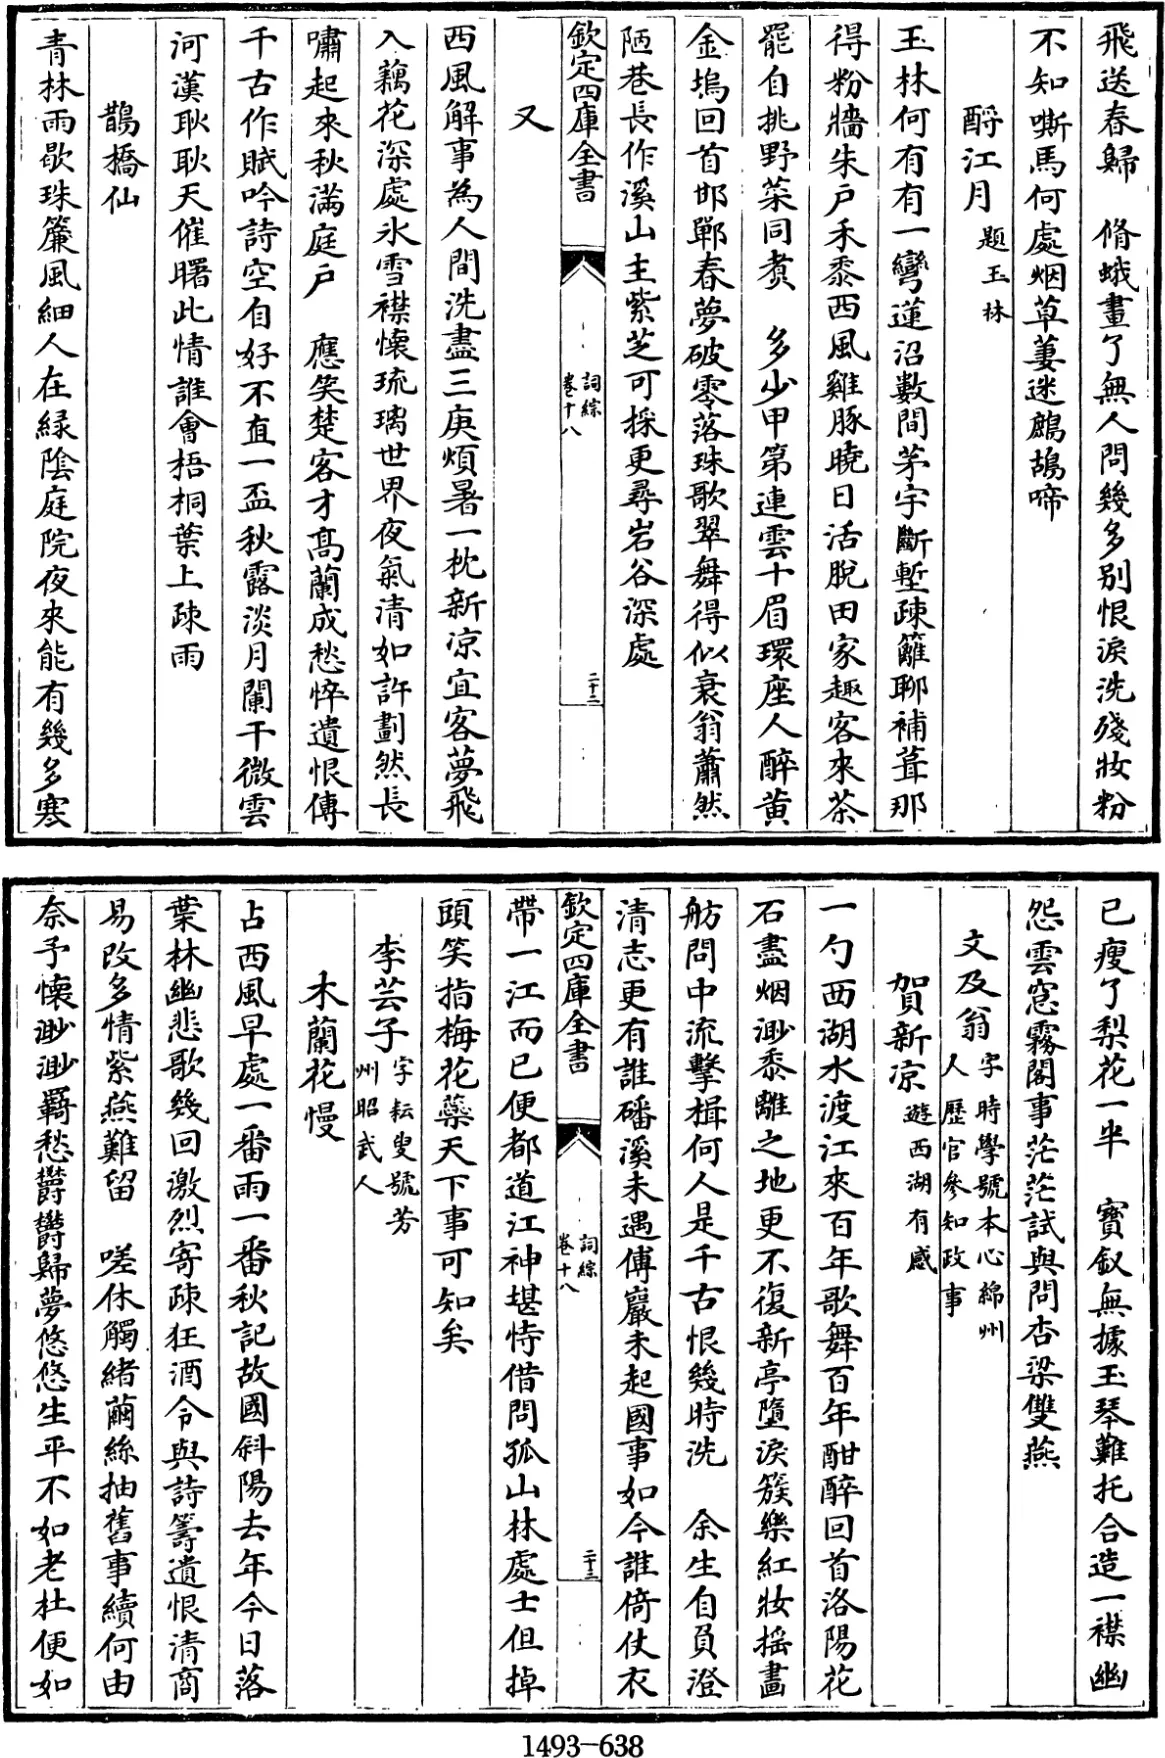 飛送春歸　脩蛾畫了無人問幾多别恨淚洗殘妝粉
不知嘶馬何處烟草萋迷鷓鴣啼
酹江月題玉林
玉林何有有一彎蓮沼數間茅宇斷塹疎籬聊補葺那
得粉牆朱户禾黍西風雞豚曉日活脫田家趣客來茶
罷自挑野菜同煮　多少甲第連雲十眉環座人醉黄
金塢回首邯鄲春夢破零落珠歌翠舞得似衰翁蕭然
陋巷長作溪山主紫芝可採更尋岩谷深處
欽定四庫全書
詞綜
卷十八
二十二
又
西風解事為人間洗盡三庚煩暑一枕新凉宜客夢飛
入藕花深處氷雪襟懷琉璃世界夜氣清如許劃然長
嘯起來秋滿庭户　應笑楚客才高蘭成愁悴遺恨傳
千古作賦吟詩空自好不直一盃秋露淡月闌干微雲
河漢耿耿天催曙此情誰會梧桐葉上疎雨
鵲橋仙
青林雨歇珠簾風細人在緑陰庭院夜來能有幾多寒
已瘦了梨花一半　寳釵無據玉琴難托合造一襟幽
怨雲窓霧閣事茫茫試與問杏梁雙燕
文及翁字時學號本心綿州
人歷官參知政事
賀新凉遊西湖有感
一勺西湖水渡江來百年歌舞百年酣醉回首洛陽花
石盡烟渺黍離之地更不復新亭墮淚簇樂紅妝摇畫
舫問中流擊楫何人是千古恨幾時洗　余生自負澄
清志更有誰磻溪未遇傅巖未起國事如今誰倚仗衣
欽定四庫全書
詞綜
卷十八
二十三
帶一江而已便都道江神堪恃借問孤山林處士但掉
頭笑指梅花蘂天下事可知矣
李芸子字耘叟號芳
州昭武人
木蘭花慢
占西風早處一番雨一番秋記故國斜陽去年今日落
葉林幽悲歌幾回激烈寄疎狂酒令與詩籌遺恨清商
易改多情紫燕難留　嗟休觸緒繭絲抽舊事續何由
奈予懷渺渺羇愁鬱鬱歸夢悠悠生平不如老杜便如
1493—638